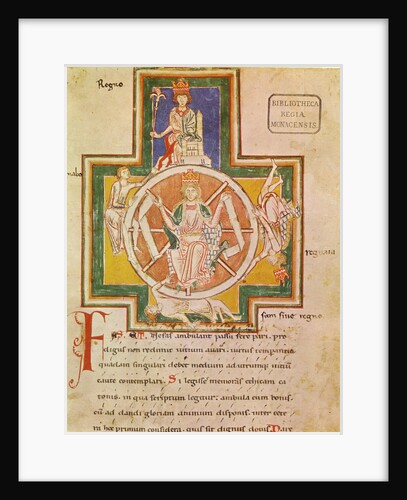 Regno
BIBLIOTHECA
REGIA
MONACENSIS.
nabo
regnaui
sum sine regno
ambulant passu fere pari. pro
digus non redimit uitium auari. uirtus temperantia
quadam singulari debet medium ad utrumque uitium
caute contemplari. Si legisse memoras ethicam ca
tonis. in qua scriptum legitur. ambula cum bonis.
cū ad dandi gloriam animum disponis. inter cete
ra hoc primum considera. quis sit dignus donis. Dare